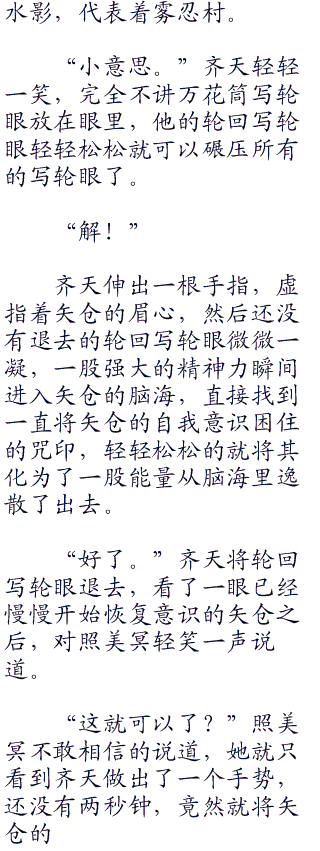 水影，代表着雾忍村。
“小意思。”齐天轻轻
一笑，完全不讲万花筒写轮
眼放在眼里，他的轮回写轮
眼轻轻松松就可以碾压所有
的写轮眼了。
“解！”
齐天伸出一根手指，虚
指着矢仓的眉心，然后还没
有退去的轮回写轮眼微微一
凝，一股强大的精神力瞬间
进入矢仓的脑海，直接找到
一直将矢仓的自我意识困住
的咒印，轻轻松松的就将其
化为了一股能量从脑海里逸
散了出去。
“好了。”齐天将轮回
写轮眼退去，看了一眼已经
慢慢开始恢复意识的矢仓之
后，对照美冥轻笑一声说
道。
“这就可以了？”照美
冥不敢相信的说道，她就只
看到齐天做出了一个手势，
还没有两秒钟，竟然就将矢
仓的